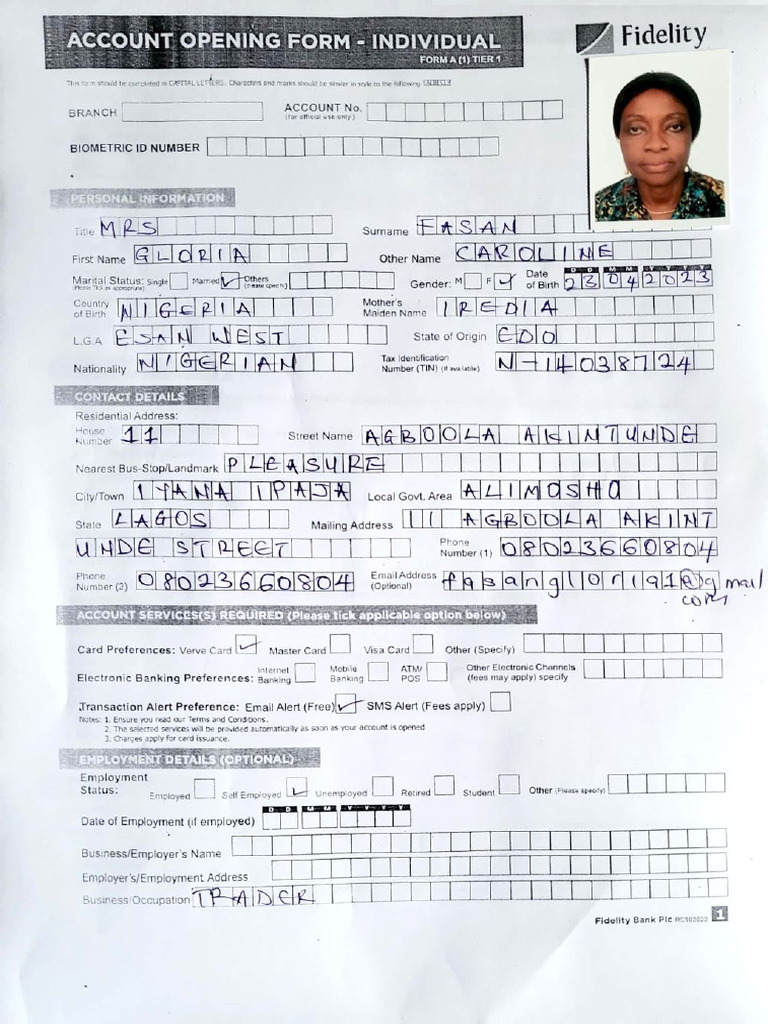 ACCOUNT OPENING FORM - INDIVIDUAL
FORM A (1) TIER 1
Fidelity
This form should be completed in CAPITAL LETTERS. Characters and marks should be similar in style to the following
BRANCH ACCOUNT No.
(for official use only)
BIOMETRIC ID NUMBER
PERSONAL INFORMATION
Title MRS Surname FASAN
First Name GLORIA Other Name CAROLINE
Marital Status: Single Married Others Gender: M F Date of Birth DD MM YYYY 23 04 2023
(Please tick as appropriate) (please specify)
Country of Birth NIGERIA Mother's Maiden Name IREDIA
L.G.A ESAN WEST State of Origin EDO
Nationality NIGERIAN Tax Identification Number (TIN) (if available) N-14038724
CONTACT DETAILS
Residential Address:
House Number 11 Street Name AGBOOLA AKINTUNDE
Nearest Bus-Stop/Landmark PLEASURE
City/Town IYANA IPAJA Local Govt. Area ALIMOSHO
State LAGOS Mailing Address 11 AGBOOLA AKINT
UNDE STREET Phone Number (1) 08023660804
Phone Number (2) 08023660804 Email Address (Optional) fasangloria1@gmail
com
ACCOUNT SERVICES(S) REQUIRED (Please tick applicable option below)
Card Preferences: Verve Card Master Card Visa Card Other (Specify)
Electronic Banking Preferences: Internet Banking Mobile Banking ATM/POS Other Electronic Channels (fees may apply) specify
Transaction Alert Preference: Email Alert (Free) SMS Alert (Fees apply)
Notes: 1. Ensure you read our Terms and Conditions.
2. The selected services will be provided automatically as soon as your account is opened
3. Charges apply for card issuance.
EMPLOYMENT DETAILS (OPTIONAL)
Employment Status: Employed Self Employed Unemployed Retired Student Other (Please specify)
Date of Employment (if employed) DD MM YYYY
Business/Employer's Name
Employer's/Employment Address
Business/Occupation TRADER
Fidelity Bank Plc RC102022 1